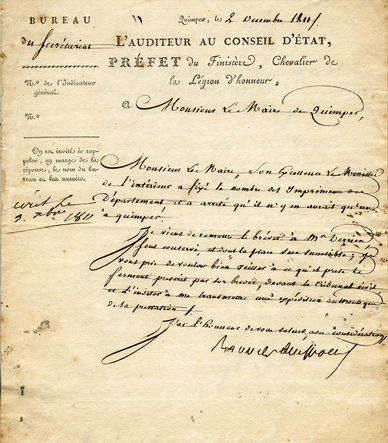 BUREAU
du Secrétariat
Quimper, le 2 Decembre 1811
L'AUDITEUR AU CONSEIL D'ÉTAT,
PRÉFET du Finistère, Chevalier de
la Légion d'honneur,
N.º de l'Indicateur
général.
N.º
On est invité à rap-
peler, en marge de la
réponse, le nom du bu-
reau et les numéro.
A Monsieur Le Maire de Quimper,
écrit le
3. xbre 1811
Monsieur Le Maire, Son Excellence Le Ministre
de l'intérieur a fixé le nombre des Imprimeurs du
Département, et a arreté qu'il n'y en aurait qu'un
à quimper.
Je viens de remettre le brévet à Mr Derrien
seul conservé, et dont la place sera
vous prie de vouloir bien veiller à ce qu'il prete le
serment prescrit par son brevet, devant le tribunal civil
et l'inviter à me transmettre une expédition authentique
de la prestation.
J'ai l'honneur de vous saluer, avec considération